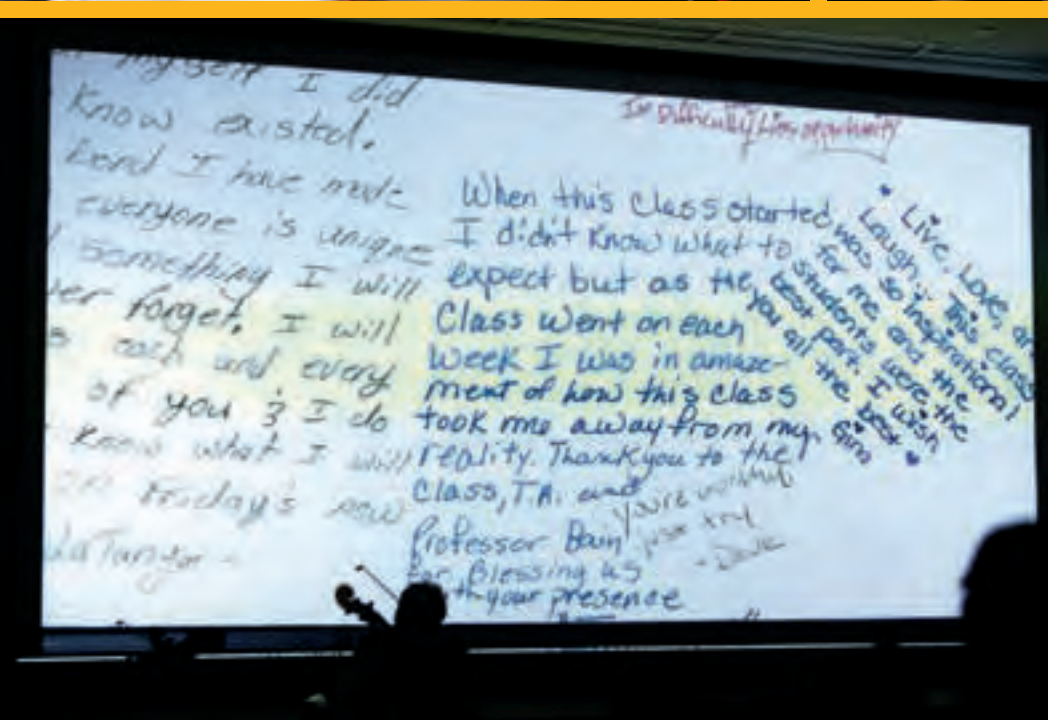 myself I did
Know existed.
I have made
everyone is unique
something I will
forget. I will
each and every
of you & I do
Know what I will
on Friday's now
In Difficulty lies opportunity
When this class started,
I didn't know what to
expect but as the
Class went on each
week I was in amaze-
ment of how this class
took me away from my
reality. Thank you to the
Class, T.A. and
Professor Bain
for Blessing us
with your presence
Live, Love, and
Laugh. This class
was so inspirational
for me and the
students were the
best part. I wish
you all the best
Gina
You're worthy
just try
- Dave